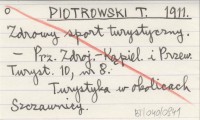 PIOTROWSKI T. 1911.
Zdrowy sport turystyczny.
– Prz. Zdroj.-Kąpiel. i Przew.
Turyst. 10, nr 8.
Turystyka w okolicach
Szczawnicy.